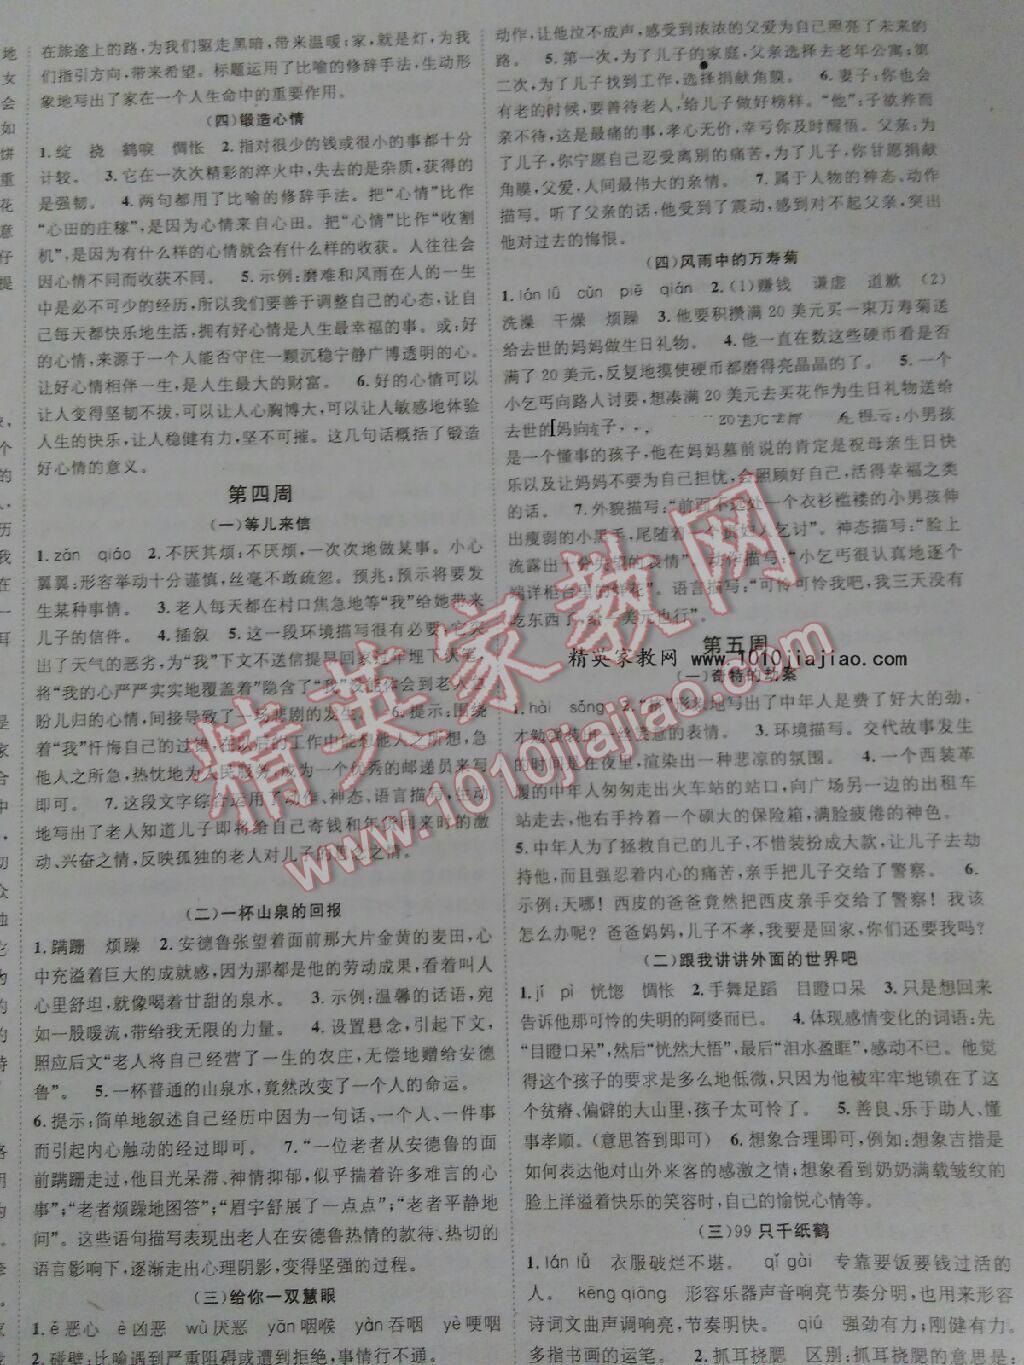 在旅途上的路,为我们驱走黑暗,带来温暖;家,就是灯,为我
们指引方向,带来希望。标题运用了比喻的修辞手法,生动形
象地写出了家在一个人生命中的重要作用。
(四)锻造心情
1.绽 挠 鹤唳 惆怅 2.指对很少的钱或很小的事都十分
计较。 3.它在一次次精彩的淬火中,失去的是杂质,获得的
是强韧。 4.两句都用了比喻的修辞手法。把“心情”比作
“心田的庄稼”,是因为心情来自心田。把“心情”比作“收割
机”,是因为有什么样的心情就会有什么样的收获。人往往会
因心情不同而收获不同。 5.示例:磨难和风雨在人的一生
中是必不可少的经历,所以我们要善于调整自己的心态,让自
己每天都快乐地生活,拥有好心情是人生最幸福的事。或:好
的心情,来源于一个人能否守住一颗沉稳宁静广博透明的心。
让好心情相伴一生,是人生最大的财富。 6.好的心情可以
让人变得坚韧不拔,可以让人心胸博大,可以让人敏感地体验
人生的快乐,让人稳健有力,坚不可摧。这几句话概括了锻造
好心情的意义。
第四周
(一)等儿来信
1.zǎn qiáo 2.不厌其烦:不厌烦,一次次地做某事。小心
翼翼:形容举动十分谨慎,丝毫不敢疏忽。预兆:预示将要发
生某种事情。 3.老人每天都在村口焦急地等“我”给她带来
儿子的信件。 4.插叙 5.这一段环境描写很有必要;它突
出了天气的恶劣,为“我”下文不送信提早回家过年埋下伏笔,
将“我的心严严实实地覆盖着”隐含了“我”没能体会到老人
盼儿归的心情,间接导致了一场悲剧的发生。 6.提示:围绕
着“我”忏悔自己的过错,在以后的工作中能想他人之所想,急
他人之所急,热忱地为人民服务,成为一个优秀的邮递员来写
即可。 7.这段文字综合运用了动作、神态、语言描写,生动
地写出了老人知道儿子即将给自己寄钱和年货回来时的激
动、兴奋之情,反映孤独的老人对儿子的思念之情。
(二)一杯山泉的回报
1.蹒跚 烦躁 2.安德鲁张望着面前那大片金黄的麦田,心
中充溢着巨大的成就感,因为那都是他的劳动成果,看着叫人
心里舒坦,就像喝着甘甜的泉水。 3.示例:温馨的话语,宛
如一股暖流,带给我无限的力量。 4.设置悬念,引起下文,
照应后文“老人将自己经营了一生的农庄,无偿地赠给安德
鲁”。 5.一杯普通的山泉水,竟然改变了一个人的命运。
6.提示:简单地叙述自己经历中因为一句话、一个人、一件事
而引起内心触动的经过即可。 7.“一位老者从安德鲁的面
前蹒跚走过,他目光呆滞、神情抑郁,似乎揣着许多难言的心
事”;“老者烦躁地图答”;“眉宇舒展了一点点”;“老者平静地
问”。这些语句描写表现出老人在安德鲁热情的款待、热切的
语言影响下,逐渐走出心理阴影,变得坚强的过程。
(三)给你一双慧眼
1.ě恶心 è凶恶 wù厌恶 yān咽喉 yàn吞咽 yè哽咽
2.碰壁:比喻遇到严重阻碍或遭到拒绝,事情行不通。
动作,让他泣不成声,感受到浓浓的父爱为自己照亮了未来的
路。 5.第一次,为了儿子的家庭,父亲选择去老年公寓;第
二次,为了儿子找到工作,选择捐献角膜。 6.妻子:你也会
有老的时候,要善待老人,给儿子做好榜样。“他”:子欲养而
亲不待,这是最痛的事,孝心无价,幸亏你及时醒悟。父亲:为
了儿子,你宁愿自己忍受离别的痛苦,为了儿子,你甘愿捐献
角膜,父爱,人间最伟大的亲情。 7.属于人物的神态、动作
描写。听了父亲的话,他受到了震动,感到对不起父亲,突出
他对过去的悔恨。
(四)风雨中的万寿菊
1.lán lǚ cūn piē qián 2.(1)赚钱 谦虚 道歉 (2)
洗澡 干燥 烦躁 3.他要积攒满20美元买一束万寿菊送
给去世的妈妈做生日礼物。 4.他一直在数这些硬币看是否
满了20美元,反复地摸索使硬币都磨得亮晶晶的了。 5.一个
小乞丐向路人讨要,想凑满20美元去买花作为生日礼物送给
去世的妈妈
小男孩
是一个懂事的孩子,他在妈妈墓前说的肯定是祝母亲生日快
乐以及让妈妈不要为自己担忧,会照顾好自己,活得幸福之类
的话。 7.外貌描写:“前面不远处一个衣衫褴褛的小男孩伸
出瘦弱的小黑手,尾随着一个贵妇人乞讨”。神态描写:“脸上
流露出十分失望的表情” 动作描写:“小乞丐很认真地逐个
端详柜台里的鲜花”。语言描写:“可怜可怜我吧,我三天没有
吃东西了,给一美元也行”。
第五周
(一)奇特的劫案
1.hài sǒng 2.“挤”形象地写出了中年人是费了好大的劲,
才勉强装出一丝歉意的表情。 3.环境描写。交代故事发生
的时间是在夜里,渲染出一种悲凉的氛围。 4.一个西装革
履的中年人匆匆走出火车站的站口,向广场另一边的出租车
站走去,他右手拎着一个硕大的保险箱,满脸疲倦的神色。
5.中年人为了拯救自己的儿子,不惜装扮成大款,让儿子去劫
持他,而且强忍着内心的痛苦,亲手把儿子交给了警察。 6.
示例:天哪!西皮的爸爸竟然把西皮亲手交给了警察!我该
怎么办呢?爸爸妈妈,儿子不孝,我要是回家,你们还要我吗?
(二)跟我讲讲外面的世界吧
1.jí pì 恍惚 惆怅 2.手舞足蹈 目瞪口呆 3.只是想回来
告诉他那可怜的失明的阿婆而已。 4.体现感情变化的词语:先
“目瞪口呆”,然后“恍然大悟”,最后“泪水盈眶”,感动不已。他觉
得这个孩子的要求是多么地低微,只因为被牢牢地锁在了这
个贫瘠、偏僻的大山里,孩子太可怜了。 5.善良、乐于助人、懂
事孝顺。(意思答到即可) 6.想象合理即可,例如:想象古措是
如何表达他对山外来客的感激之情;想象看到奶奶满载皱纹的
脸上洋溢着快乐的笑容时,自己的愉悦心情等。
(三)99只千纸鹤
1.lán lǚ 衣服破烂不堪。 qǐ gài 专靠要饭要钱过活的
人。 kēng qiāng 形容乐器声音响亮节奏分明,也用来形容
诗词文曲声调响亮,节奏明快。 qiú 强劲有力;刚健有力。
多指书画的运笔。 2.抓耳挠腮 区别:抓耳挠腮的意思是:
精英家教网
www.1010jiajiao.com
精英家教网 www.1010jiajiao.com